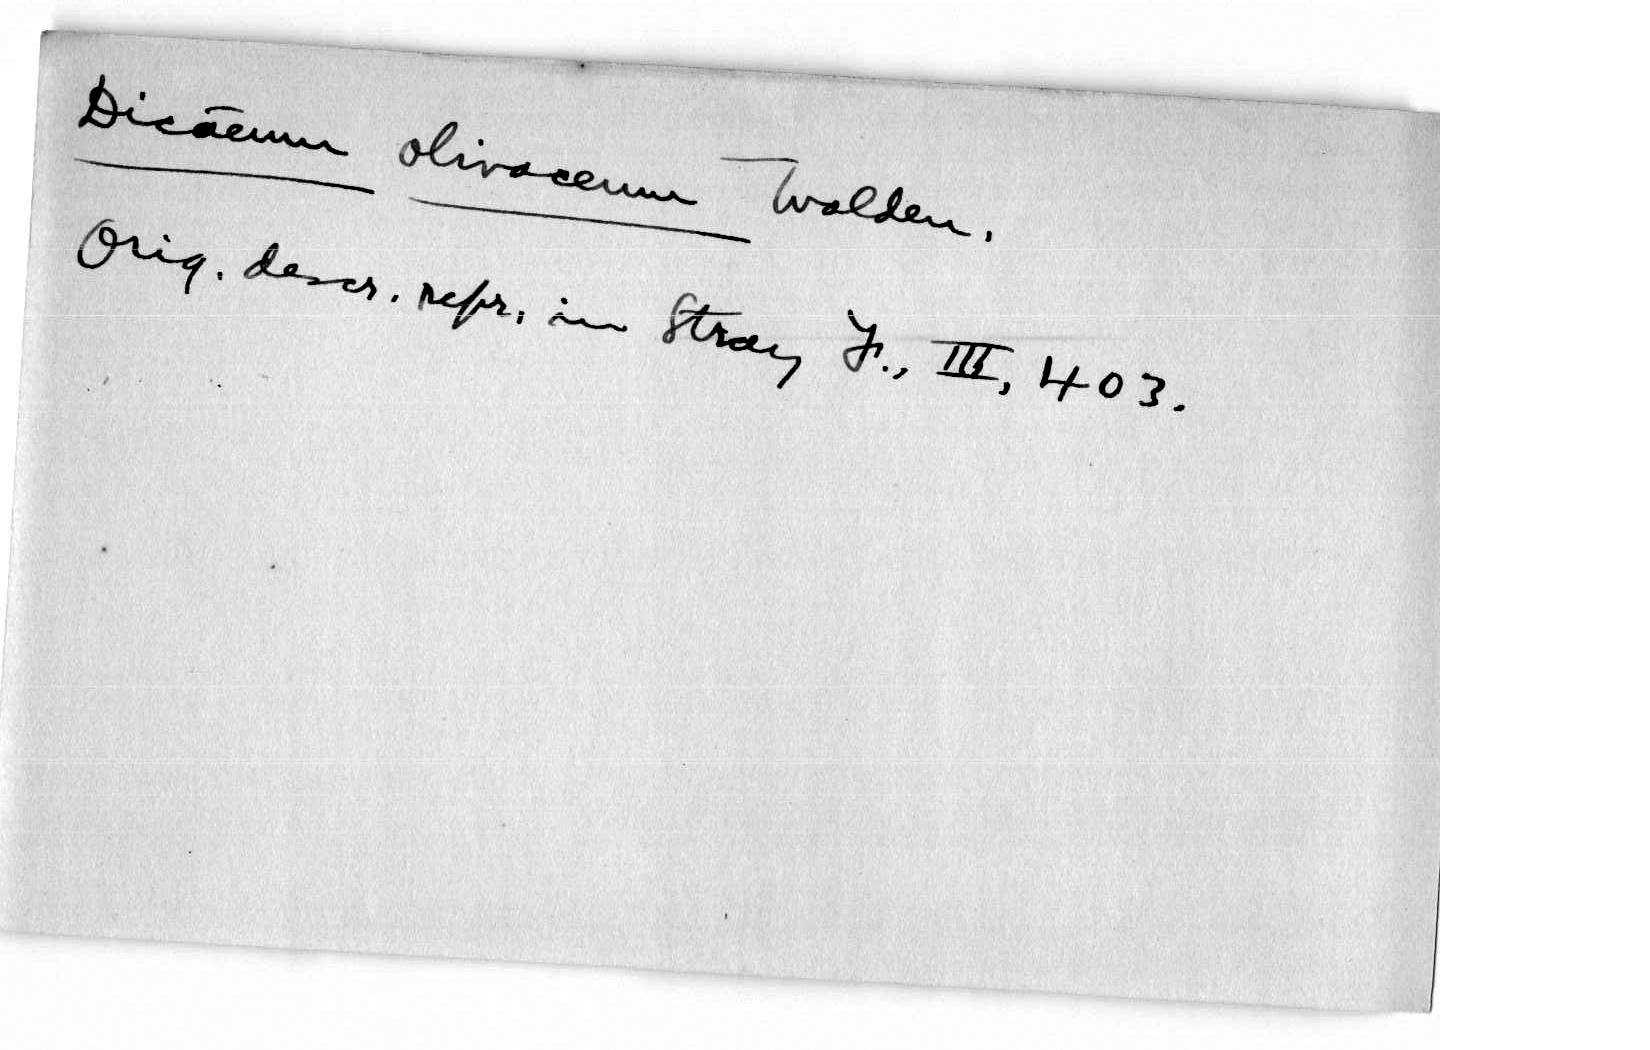 Dicāeum olivaceum Walden.
Orig. descr. repr. in Stray F., III, 403.